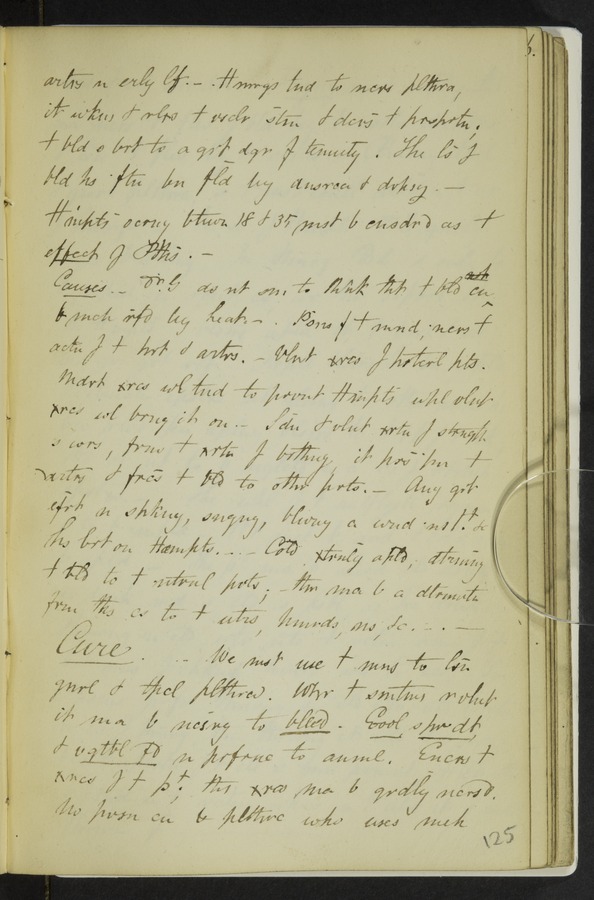 6.
artrs n erly lf. — Hmrgs tnd to ncrs plthra,
it wkns & rlxs t vsclr stm & dcrs t prprtn,
t bld s brt to a grt dgr f tenuity. The ls f
bld hs ftn bn flld by ansrca & drpsy. —
Hmpts ocrng btwn 18 & 35 mst b cnsdrd as t
effect f Pthis. —
Causes — Dr. G ds nt sm to thnk tht t bld cn
b mch rfd by heat — . Psns f t mnd; ncrs t
actn f t hrt & artrs. — Vlnt xrcs f hntcrl pts.
Mdrt xrcs wl tnd to prvnt Hmpts whl vlnt
xrcs wl brng it on — Sdn & vlnt xrtn f strngth
s wrs, frm t xrtn f bthng, it
artrs & frcs t bld to othr prts. — Any grt
efrt n spkng, sngng, blwng a wnd inst. &c
hs brt on Hæmpts. — Cold xtrnly apld, dtrmng
t bld to t ntrnl prts; thr ma b a dtrmntn
frm ths cs to t utrs, hmrds, ns, &c. —
Cure. — We mst use t mns to lsn
gnrl & tpcl plthra. Whr t smtms r vlnt
it ma b ncsry to bleed. Cool, spr dt
& vgtbl fd n prfrnc to anml. Encrs t
xrcs f t pt; ths xrcs ma b grdly ncrsd.
No prsn cn b plthrc who uses mch
125